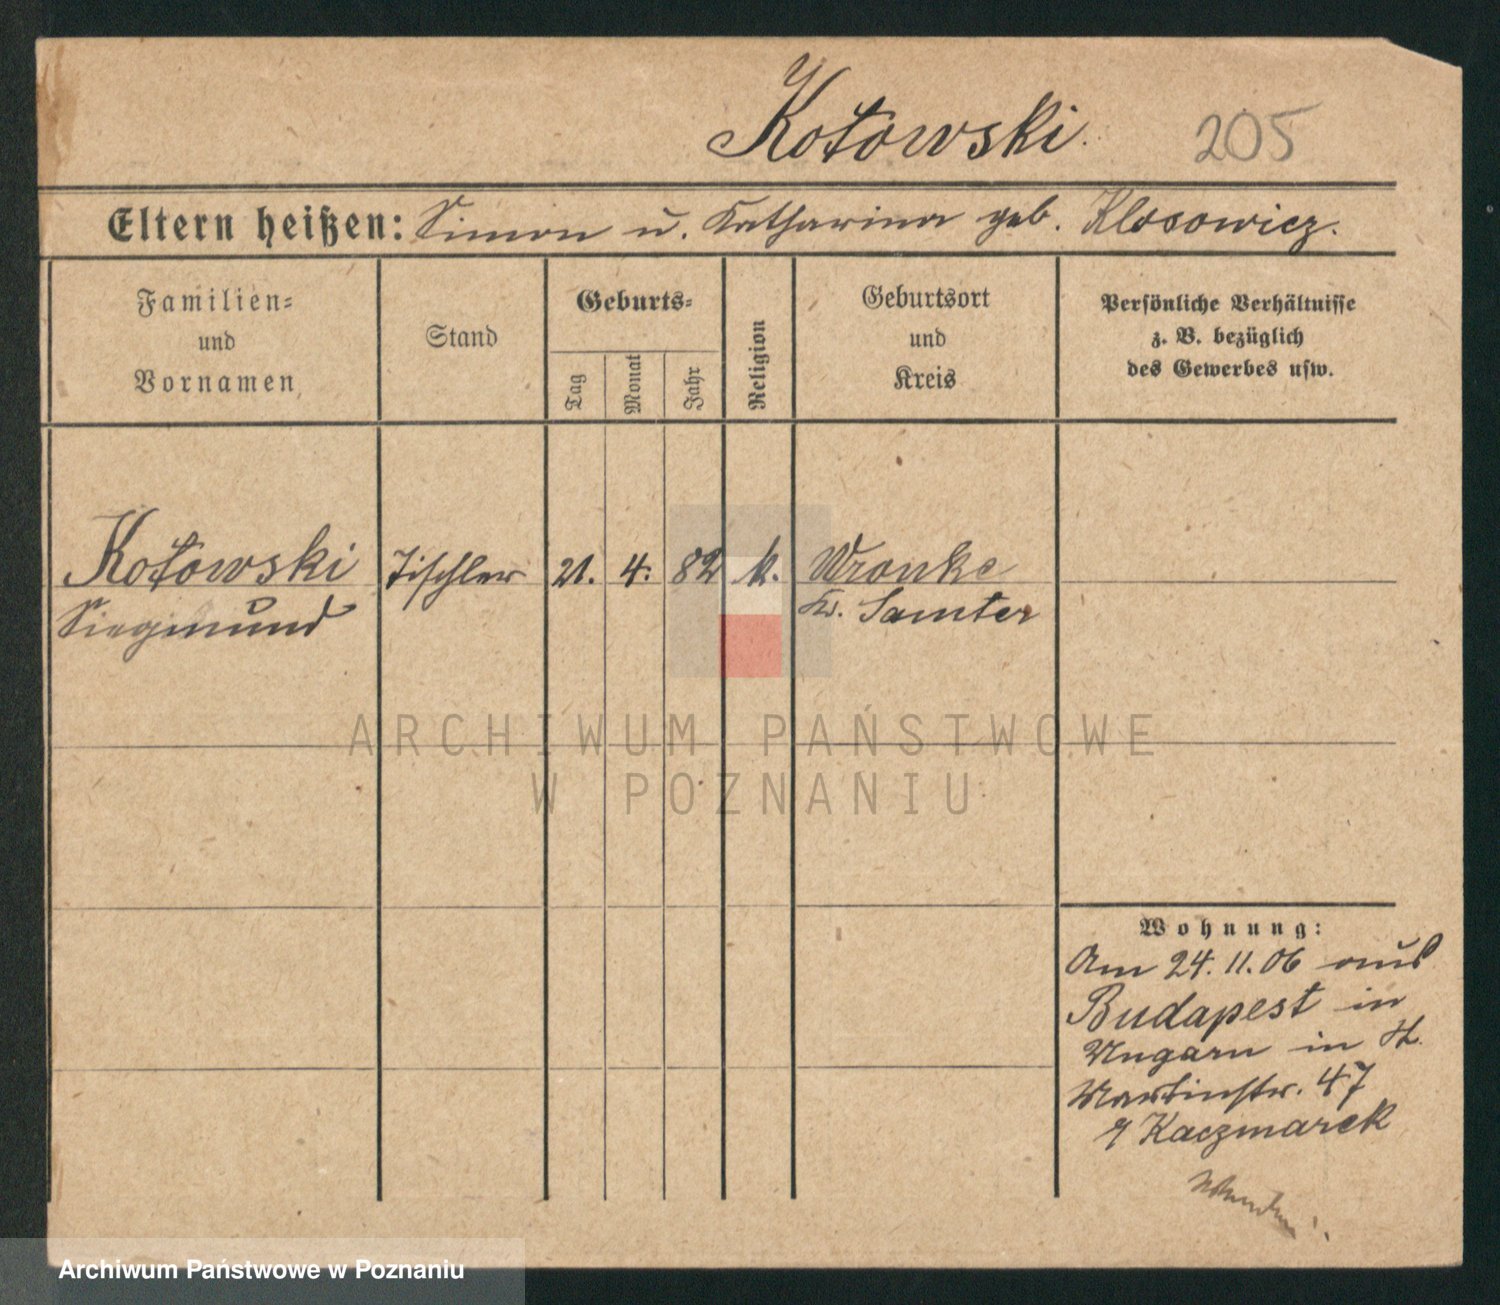 Kotowski.
205
Eltern heißen: Simon u. Katharina geb. Klosowicz.
Familien=
und
Vornamen
Stand
Geburts=
Tag
Monat
Jahr
Religion
Geburtsort
und
Kreis
Persönliche Verhältnisse
z. B. bezüglich
des Gewerbes usw.
Kotowski Tischler 21. 4. 82 k. Wronke
Siegmund Kr. Samter
ARCHIWUM PAŃSTWOWE
W POZNANIU
Wohnung:
Am 24. 11. 06 aus
Budapest in
Ungarn in St.
Martinstr. 47
Kaczmarek
Archiwum Państwowe w Poznaniu